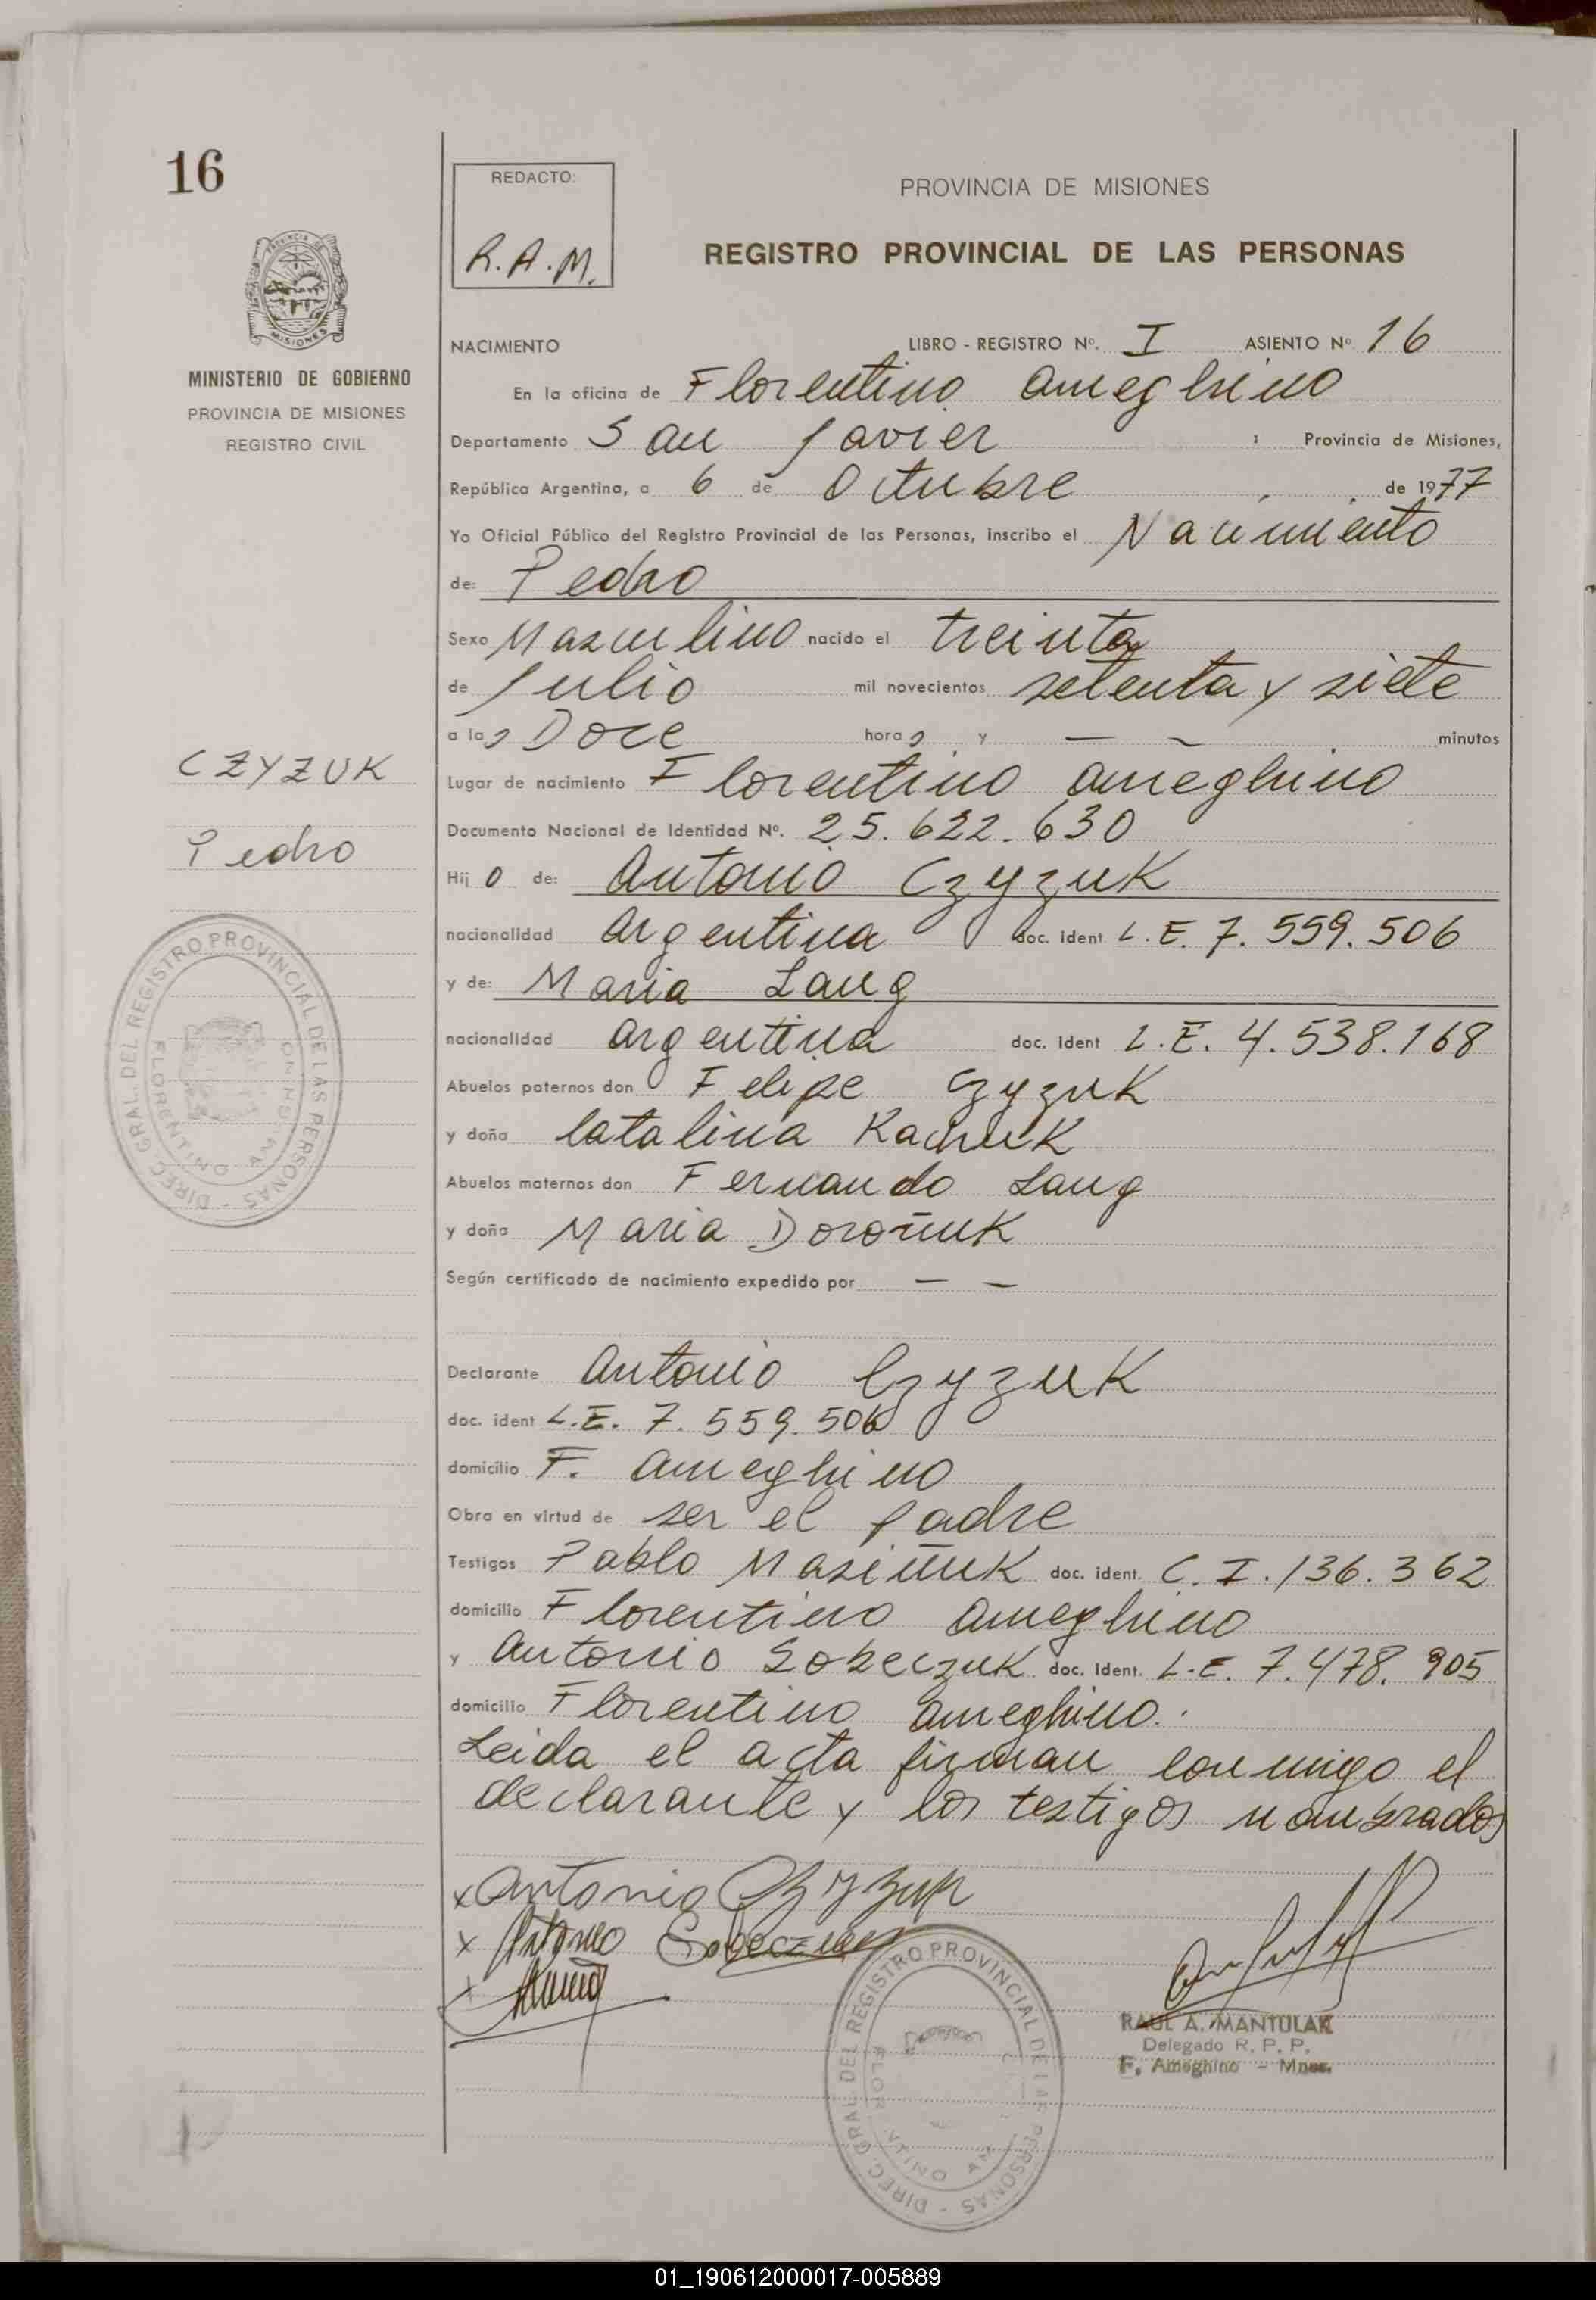 16
REDACTO:
R.A.M.
PROVINCIA DE MISIONES
REGISTRO PROVINCIAL DE LAS PERSONAS
MINISTERIO DE GOBIERNO
PROVINCIA DE MISIONES
REGISTRO CIVIL
NACIMIENTO LIBRO - REGISTRO Nº. I ASIENTO Nº 16
En la oficina de Florentino Ameghino
Departamento San Javier Provincia de Misiones,
República Argentina, a 6 de Octubre de 1977
Yo Oficial Público del Registro Provincial de las Personas, inscribo el Nacimiento
de: Pedro
Sexo Masculino nacido el treinta
de Julio mil novecientos setenta y siete
a las Doce horas y — — minutos
CZYZUK
Pedro
Lugar de nacimiento Florentino Ameghino
Documento Nacional de Identidad Nº. 25.622.630
Hijo de: Antonio Czyzuk
nacionalidad Argentina doc. ident L.E. 7.559.506
y de: Maria Lang
nacionalidad Argentina doc. ident L.E. 4.538.168
Abuelos paternos don Felipe Czyzuk
y doña Catalina
Abuelos maternos don Fernando Lang
y doña Maria Doroñuk
Según certificado de nacimiento expedido por — —
Declarante Antonio Czyzuk
doc. ident L.E. 7.559.506
domicilio F. Ameghino
Obra en virtud de ser el padre
Testigos Pablo Masiñuk doc. ident. C.I. 136.362
domicilio Florentino Ameghino
y Antonio Sobeczuk doc. Ident. L.E. 7.478.905
domicilio Florentino Ameghino.
Leida el acta firman conmigo el
declarante y los testigos nombrados
x Antonio Czyzuk
x Antonio Sobeczuk
x
DIREC. GRAL. DEL REGISTRO PROVINCIAL DE LAS PERSONAS
FLORENTINO AMEGHINO
RAUL A. MANTULAK
Delegado R. P. P.
F. Ameghino - Mnes.
01_190612000017-005889